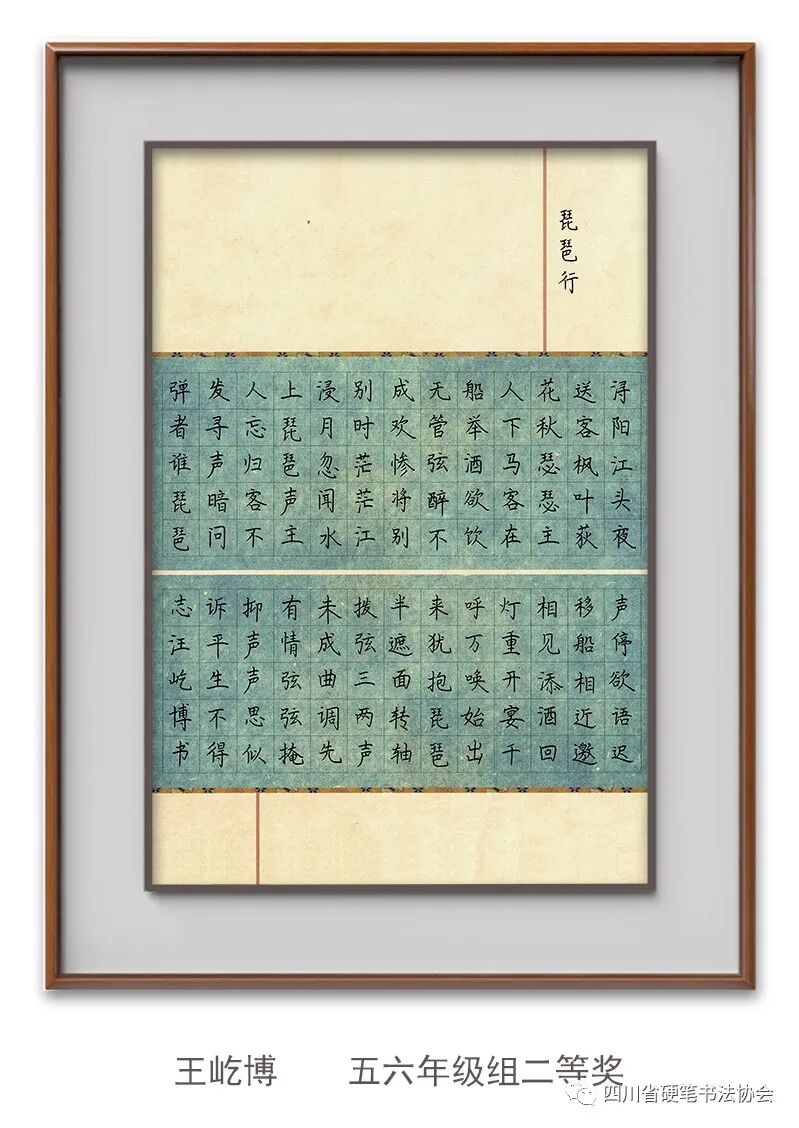 琵琶行
浔阳江头夜
送客枫叶荻
花秋瑟瑟主
人下马客在
船举酒欲饮
无管弦醉不
成欢惨将别
别时茫茫江
浸月忽闻水
上琵琶声主
人忘归客不
发寻声暗问
弹者谁琵琶
声停欲语迟
移船相近邀
相见添酒回
灯重开宴千
呼万唤始出
来犹抱琵琶
半遮面转轴
拨弦三两声
未成曲调先
有情弦弦掩
抑声声思似
诉平生不得
志汪屹博书
王屹博 五六年级组二等奖
四川省硬笔书法协会